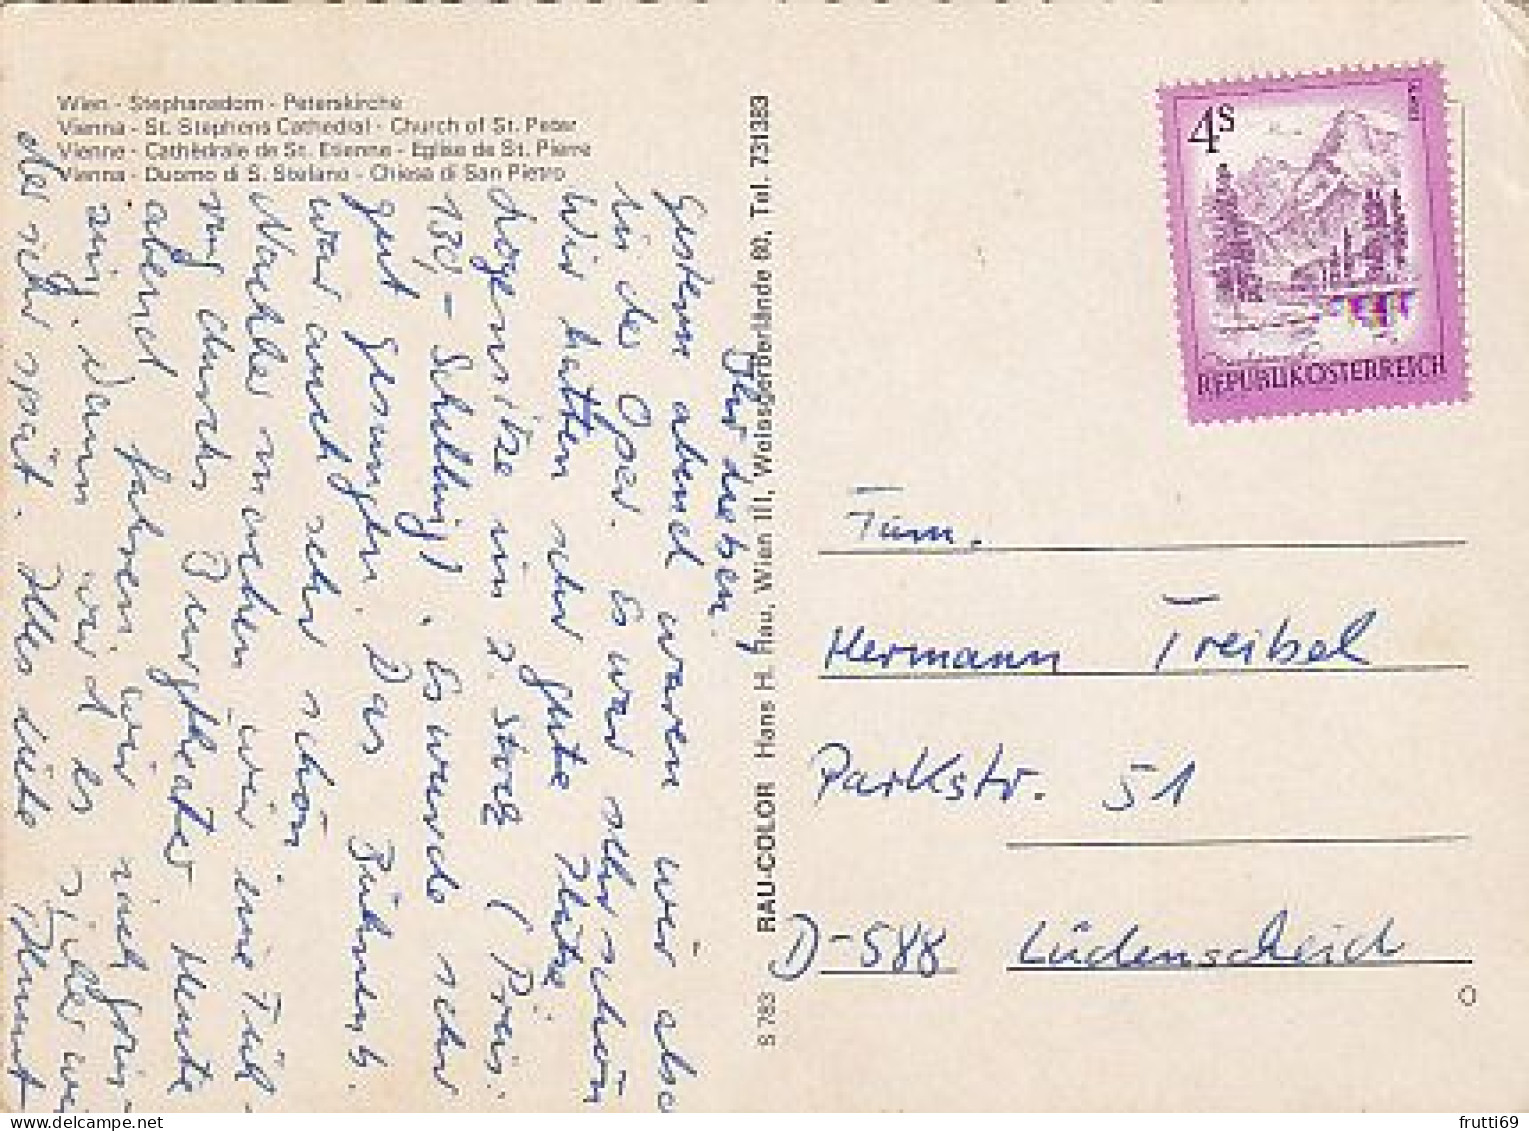 Wien - Stephansdom - Peterskirche
Vienna - St. Stephens Cathedral - Church of St. Peter
Vienne - Cathèdrale de St. Etienne - Eglise de St. Pierre
Vienna - Duomo di S. Stefano - Chiesa di San Pietro
Ihr Lieben!
Gestern abend waren wir also
in der Oper. Es war sehr schön
Wir hatten sehr gute Plätze
Logensitze im 2. Stock (Preis:
180,- Schilling). Es wurde sehr
gut gesungen. Das Bühnenb.
war auch sehr schön.
Nachher machen wir eine Füh-
rung durchs Burgtheater. Heute
abend fahren wir nach
dann wird es wir
sehr spät. Alles Liebe Helmut
S 783 RAU-COLOR Hans H. Rau, Wien III, Weissgerberlände 60, Tel. 731383
4S
REPUBLIK ÖSTERREICH
Fam.
Hermann Treibel
Parkstr. 51
D-588 Lüdenscheid
frutti69